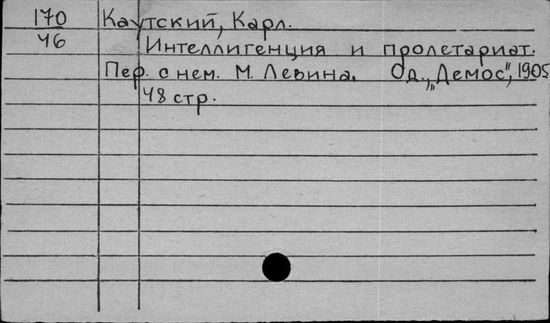 170 Каутский, Карл.
46 Интеллигенция и пролетариат.
Пер. с нем. М. Левина. Од., „Демос", 1905
48 стр.